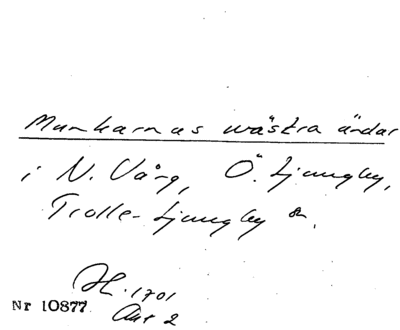 Munkarnas wästra ändar
i N. Vång, Ö. Ljungby,
Trolle-Ljungby sn.
H. 1701
Nr 10877 Akt 2